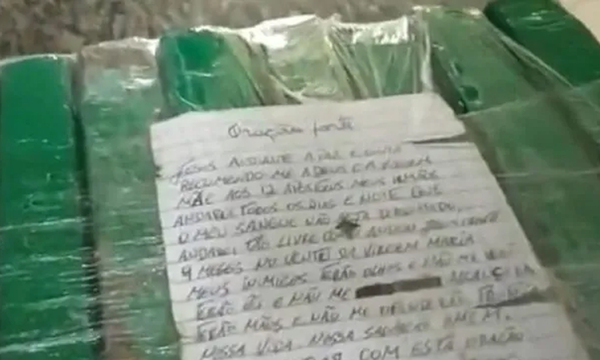 Oração forte
JESUS ADIANTE A PAZ E GUIA
RECOMENDO ME A DEUS E A VIRGEM
MÃE AOS 12 APOSTOLOS MEUS IRMÃOS
ANDAREI TODOS OS DIAS E NOITE
O MEU SANGUE NÃO SERÁ DERRAMADO
ANDAREI TÃO LIVRE ANDOU
9 MESES NO VENTRE DA VIRGEM MARIA
MEUS INIMIGOS TERÃO OLHOS E NÃO ME
TERÃO E NÃO ME
TERÃO MÃOS E NÃO ME
NOSSA VIDA NOSSA AMEM.
COM ESTA ORAÇÃO